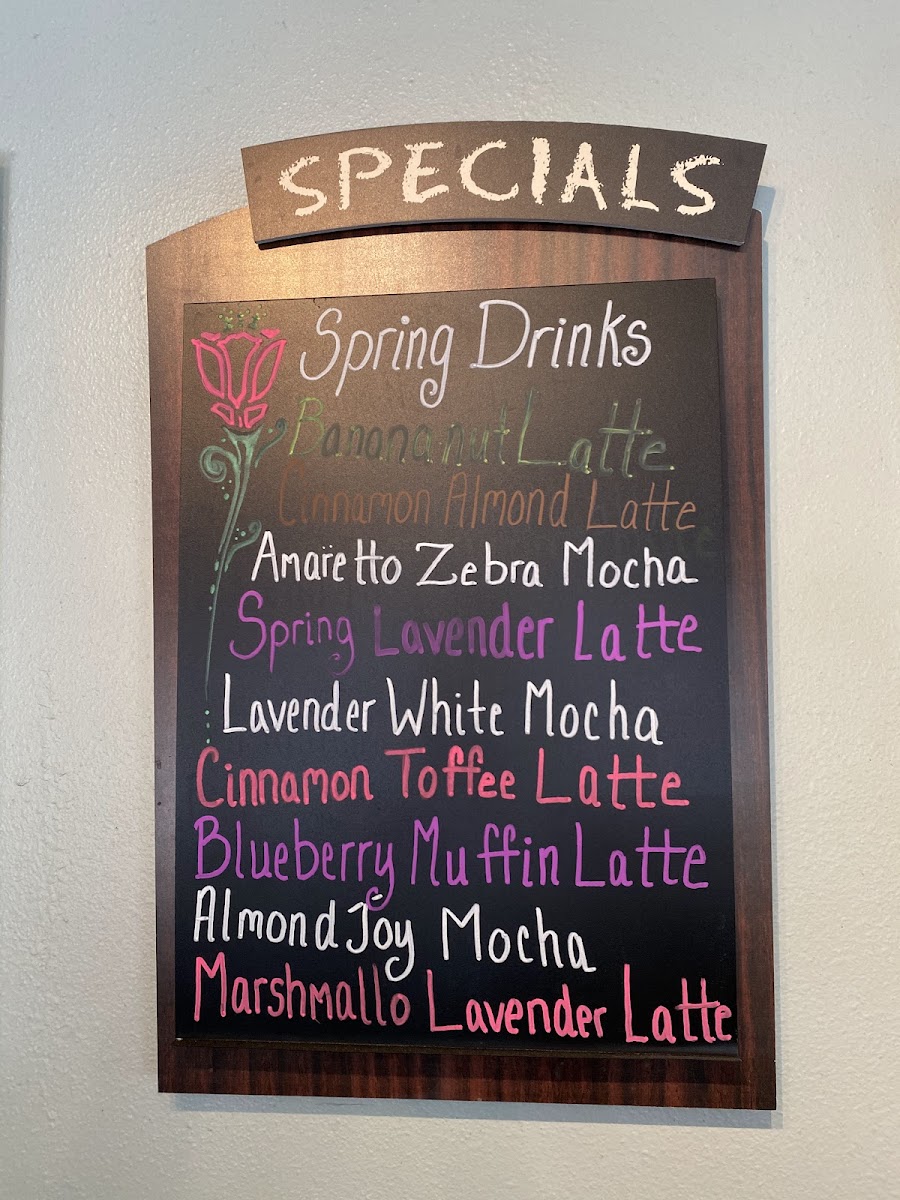 SPECIALS
Spring Drinks
Banananut Latte
Cinnamon Almond Latte
Amaretto Zebra Mocha
Spring Lavender Latte
Lavender White Mocha
Cinnamon Toffee Latte
Blueberry Muffin Latte
Almond Joy Mocha
Marshmallo Lavender Latte